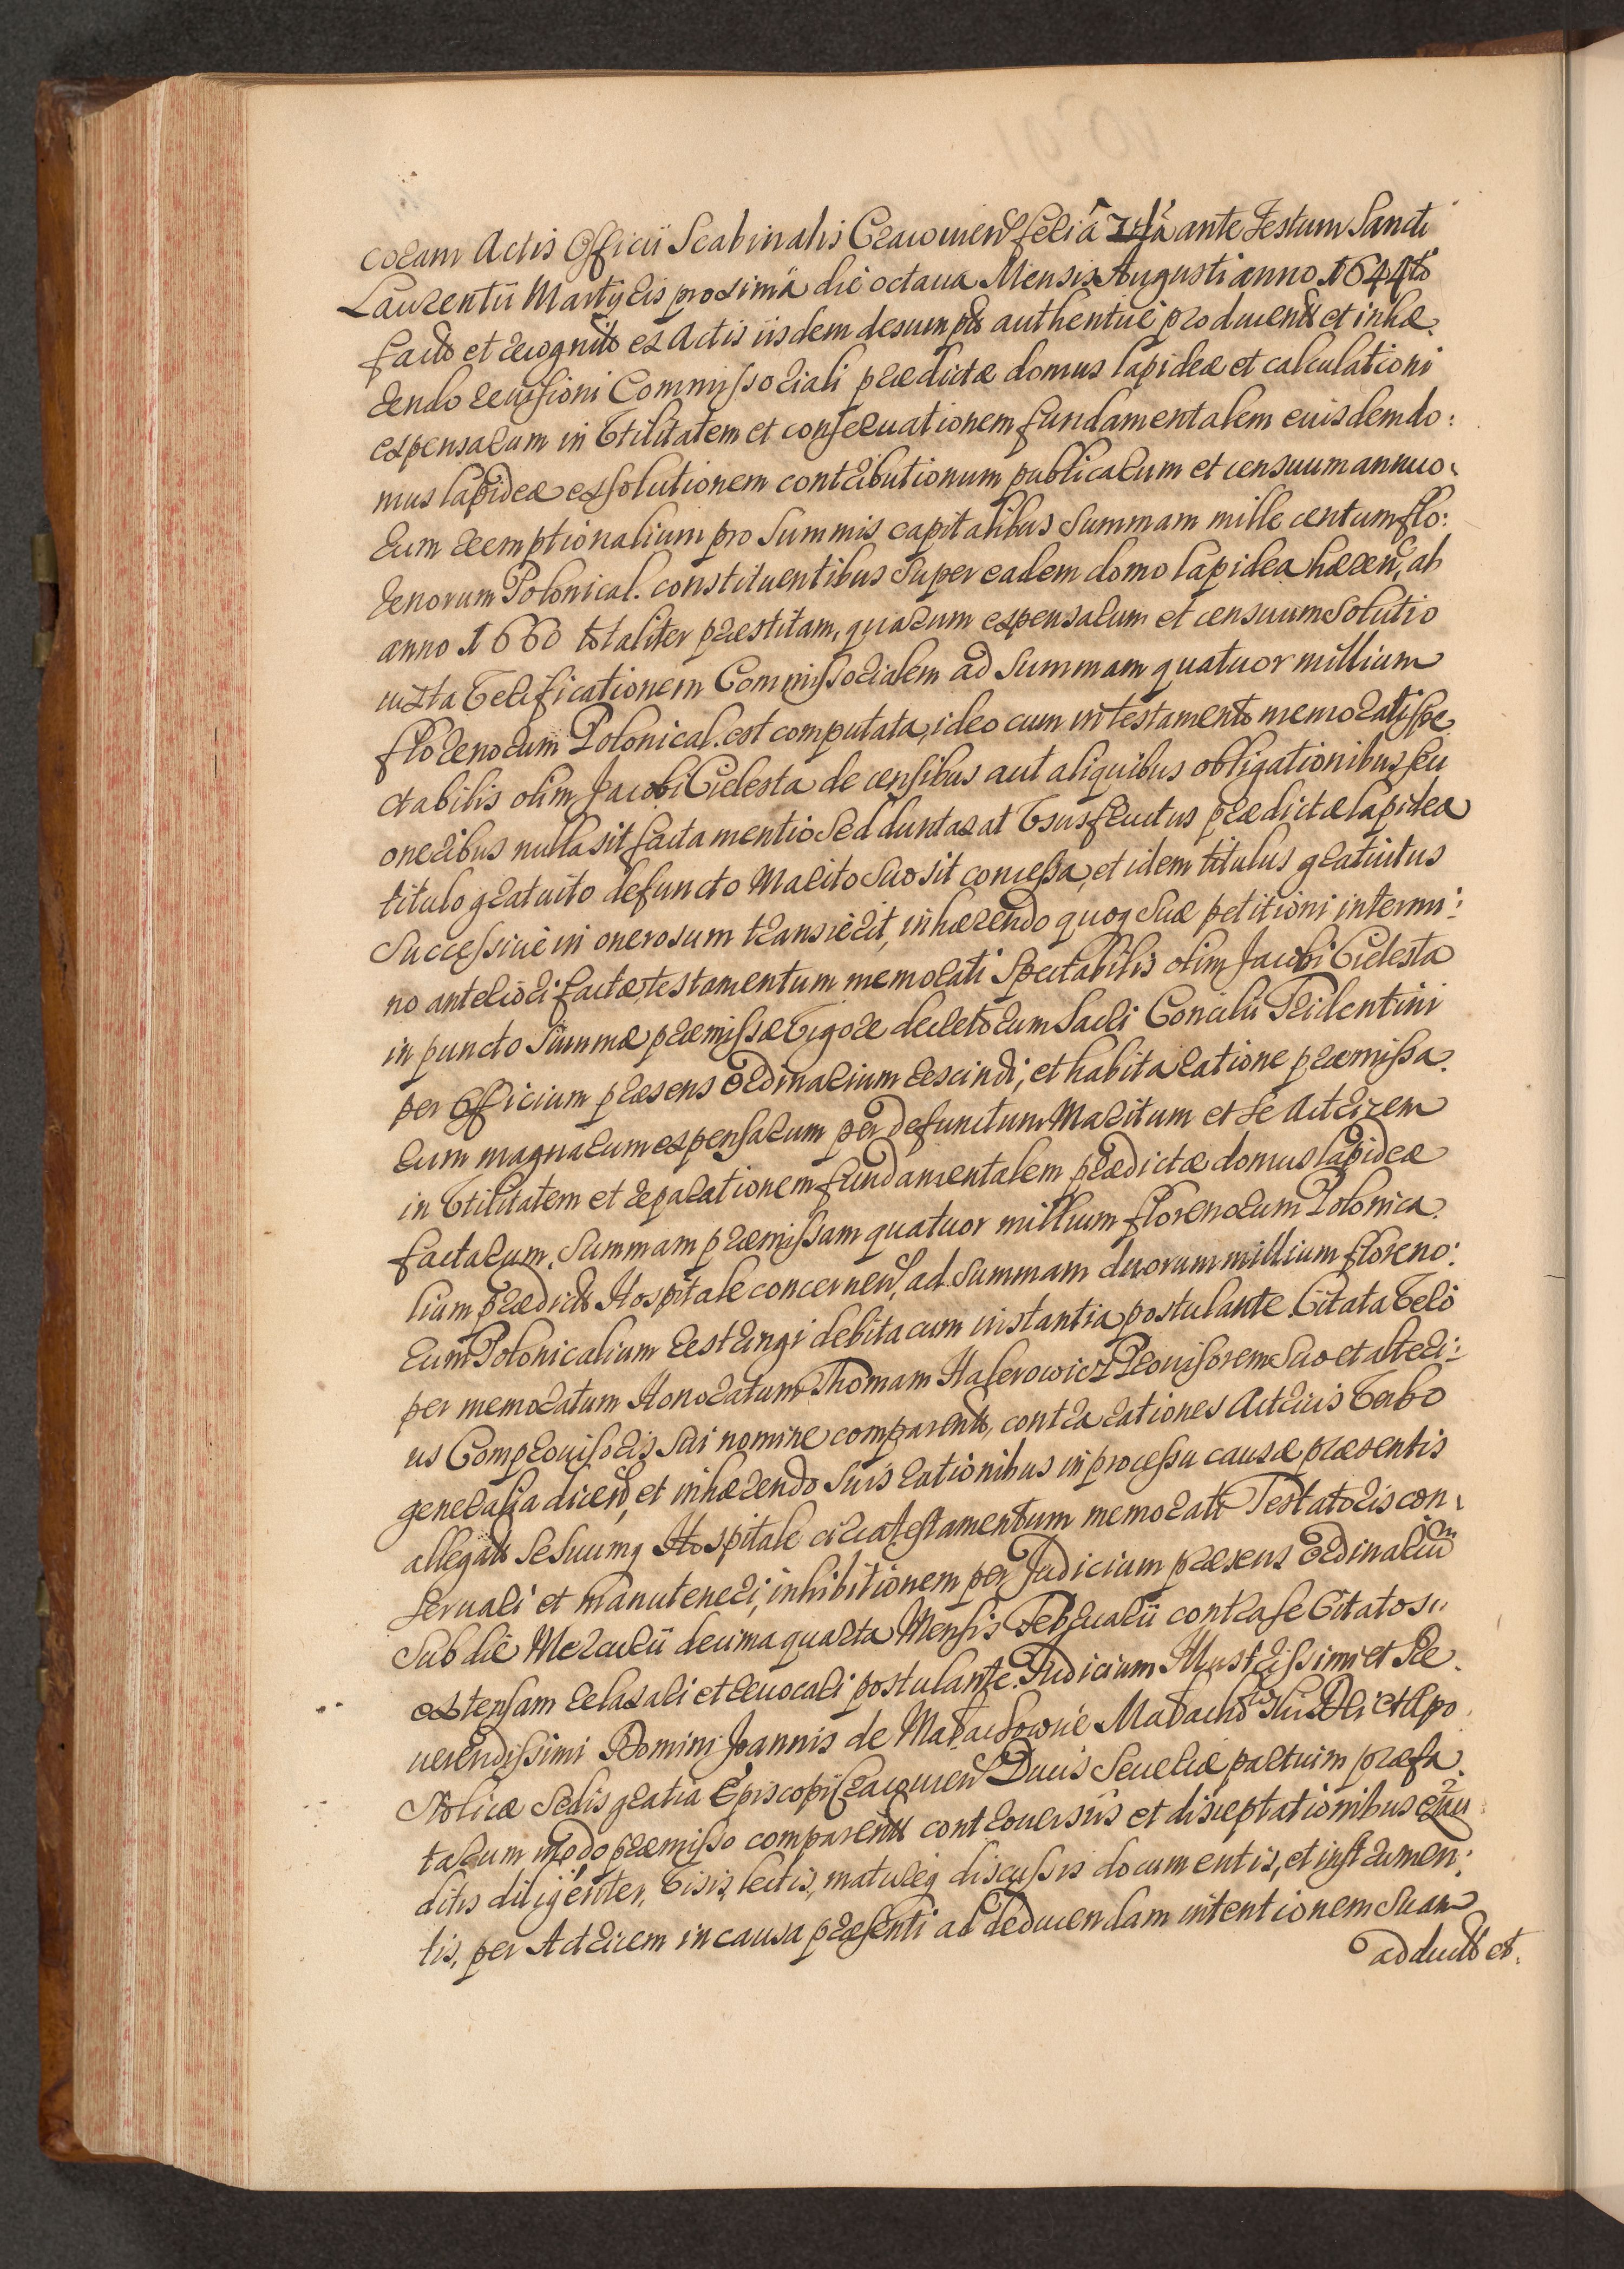 coram Actis Officii Scabinalis Cracouien feria 2da ante Festum Sancti
Laurentii Martyris proxima die octaua Mensis Augusti anno 1644to
facto et recognito ex Actis iisdem desumpto authentice producendo et inhæ
rendo reuisioni Commissoriali prædictæ domus lapideæ et calculationi
expensarum in Vtilitatem et conseruationem fundamentalem eiusdem do:
mus lapideæ exsolutionem contributionum publicarum et censuum annuo
rum reemptionalium pro summis capitalibus Summam mille centum flo:
renorum Polonical. constituentibus super eadem domo lapidea hæren, ab
anno 1660 totaliter præstitam, quarum expensarum et censuum Solutio
iuxta Verificationem Commissorialem ad Summam quatuor millium
florenorum Polonical. est computata, ideo cum in testamento memorati spe
ctabilis olim Jacobi Cielesta de censibus aut aliquibus obligationibus seu
oneribus nulla sit facta mentio Sed duntaxat Vsusfructus prædictæ lapideæ
titulo gratuito defuncto Marito Suo sit concessa, et idem titulus gratuitus
Successiue in onerosum transierit, inhærendo quoq suæ petitioni in termi:
no anteriori factæ, testamentum memorati Spectabilis olim Jacobi Cielesta
in puncto Summæ præmissæ Vigore decretorum Sacri Concilii Tridentini
per Officium præsens Ordinarium rescindi, et habita ratione præmissa
rum magnarum expensarum per defunctum Maritum et se Actricem
in Vtilitatem et reparationem fundamentalem prædictæ domus lapideæ
factarum, Summam præmissam quatuor millium florenorum Polonica
lium prædicto Hospitale concernen, ad Summam duorum millium floreno:
rum Polonicalium restringi debita cum instantia postulante. Citata Vero
per memoratum Honoratum Thomam Haserowicz Prouisorem suo et alteri:
us Comprouisoris Sui nomine comparendo, contra rationes Actricis Verbo
generalia dicendo, et inhærendo suis rationibus in processu causæ præsentis
allegatis se suumq Hospitale circa testamentum memorati Testatoris con
seruari et manuteneri, inhibitionem per Judicium præsens Ordinarium
Sub die Mercurii decima quarta Mensis Februarii contra se Citatos
extensam relaxari et reuocari postulante. Judicium Illustrissimi et Re
uerendissimi Domini Joannis de Małachowice Małachowski Dei et Apo
stolicæ Sedis gratia Episcopi Cracouien Ducis Seueriæ partium præfa
tarum modo præmisso comparentium controuersiis et disceptationibus exau
ditis diligenter, Visis, lectis, matureq discussis documentis, et instrumen:
tis, per Actricem in causa præsenti ad deducendam intentionem suam
adductis et